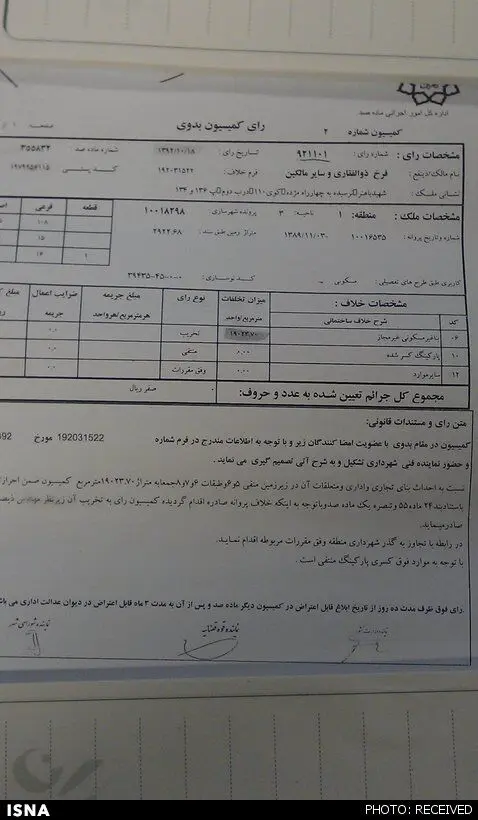 اداره کل امور اجرائی ماده صد
رای کمیسیون بدوی
کمیسیون شماره ۲
مشخصات رای :
شماره رای : ۹۲۱۱۰۱
تاریخ رای : ۱۳۹۲/۱۰/۱۸
شماره ماده صد ۳۵۵۸۳۲
نام مالک/ذینفع : فرخ ذوالفقاری و سایر مالکین
فرم خلاف : ۱۹۲۰۳۱۵۲۲
کد پستی : ۱۹۷۹۹۵۶۱۱۵
مشخصات ملک :
منطقه: ۱
ناحیه: ۳
پرونده شهرسازی ۱۰۰۱۸۲۹۸
شماره و تاریخ پروانه : ۱۰۰۱۶۵۳۵ ۱۳۸۹/۱۱/۰۳
متراژ زمین طبق سند : ۲۹۲۲.۶۸
قطعه فرعی
۱۰۸
۱۵
۱ ۱۶
کاربری طبق طرح های تفصیلی : مسکونی
کد نوسازی :
مشخصات خلاف :
کد شرح خلاف ساختمانی
میزان تخلفات مترمربع/واحد
نوع رای
مبلغ جریمه هرمترمربع/هرواحد
ضرایب اعمال جریمه
۰۶ بناغیرمسکونی غیرمجاز ۱۹۰۲۳.۷۰ تخریب ۰.۰
۱۰ پارکینگ کسر شده ۰.۰۰ منتفی ۰.۰
۱۲ سایرموارد ۰.۰۰ وفق مقررات ۰.۰
مجموع کل جرائم تعیین شده به عدد و حروف: ۰ صفر ریال
متن رای و مستندات قانونی:
کمیسیون در مقام بدوی با عضویت امضا کنندگان زیر و با توجه به اطلاعات مندرج در فرم شماره 192031522 مورخ
و حضور نماینده فنی شهرداری تشکیل و به شرح آتی تصمیم گیری می نماید .
نسبت به احداث بنای تجاری واداری ومتعلقات آن در زیرزمین منفی ۵و۶وطبقات ۶و۷و۸جمعابه متراژ۱۹۰۲۳.۷۰مترمربع کمیسیون ضمن احراز
باستنادبند۲۴ ماده۵۵ وتبصره یک ماده صدوباتوجه به اینکه خلاف پروانه صادره اقدام گردیده کمیسیون رای به تخریب آن زیرنظر مهندس
صادرمینماید.
در رابطه با تجاوز به گذر شهرداری منطقه وفق مقررات مربوطه اقدام نماید.
با توجه به موارد فوق کسری پارکینگ منتفی است .
رای فوق ظرف مدت ده روز از تاریخ ابلاغ قابل اعتراض در کمیسیون دیگر ماده صد و پس از آن به مدت ۳ ماه قابل اعتراض در دیوان عدالت اداری می
نماینده وزارت کشور
نماینده قوه قضاییه
نماینده شورای شهر
ISNA
PHOTO: RECEIVED